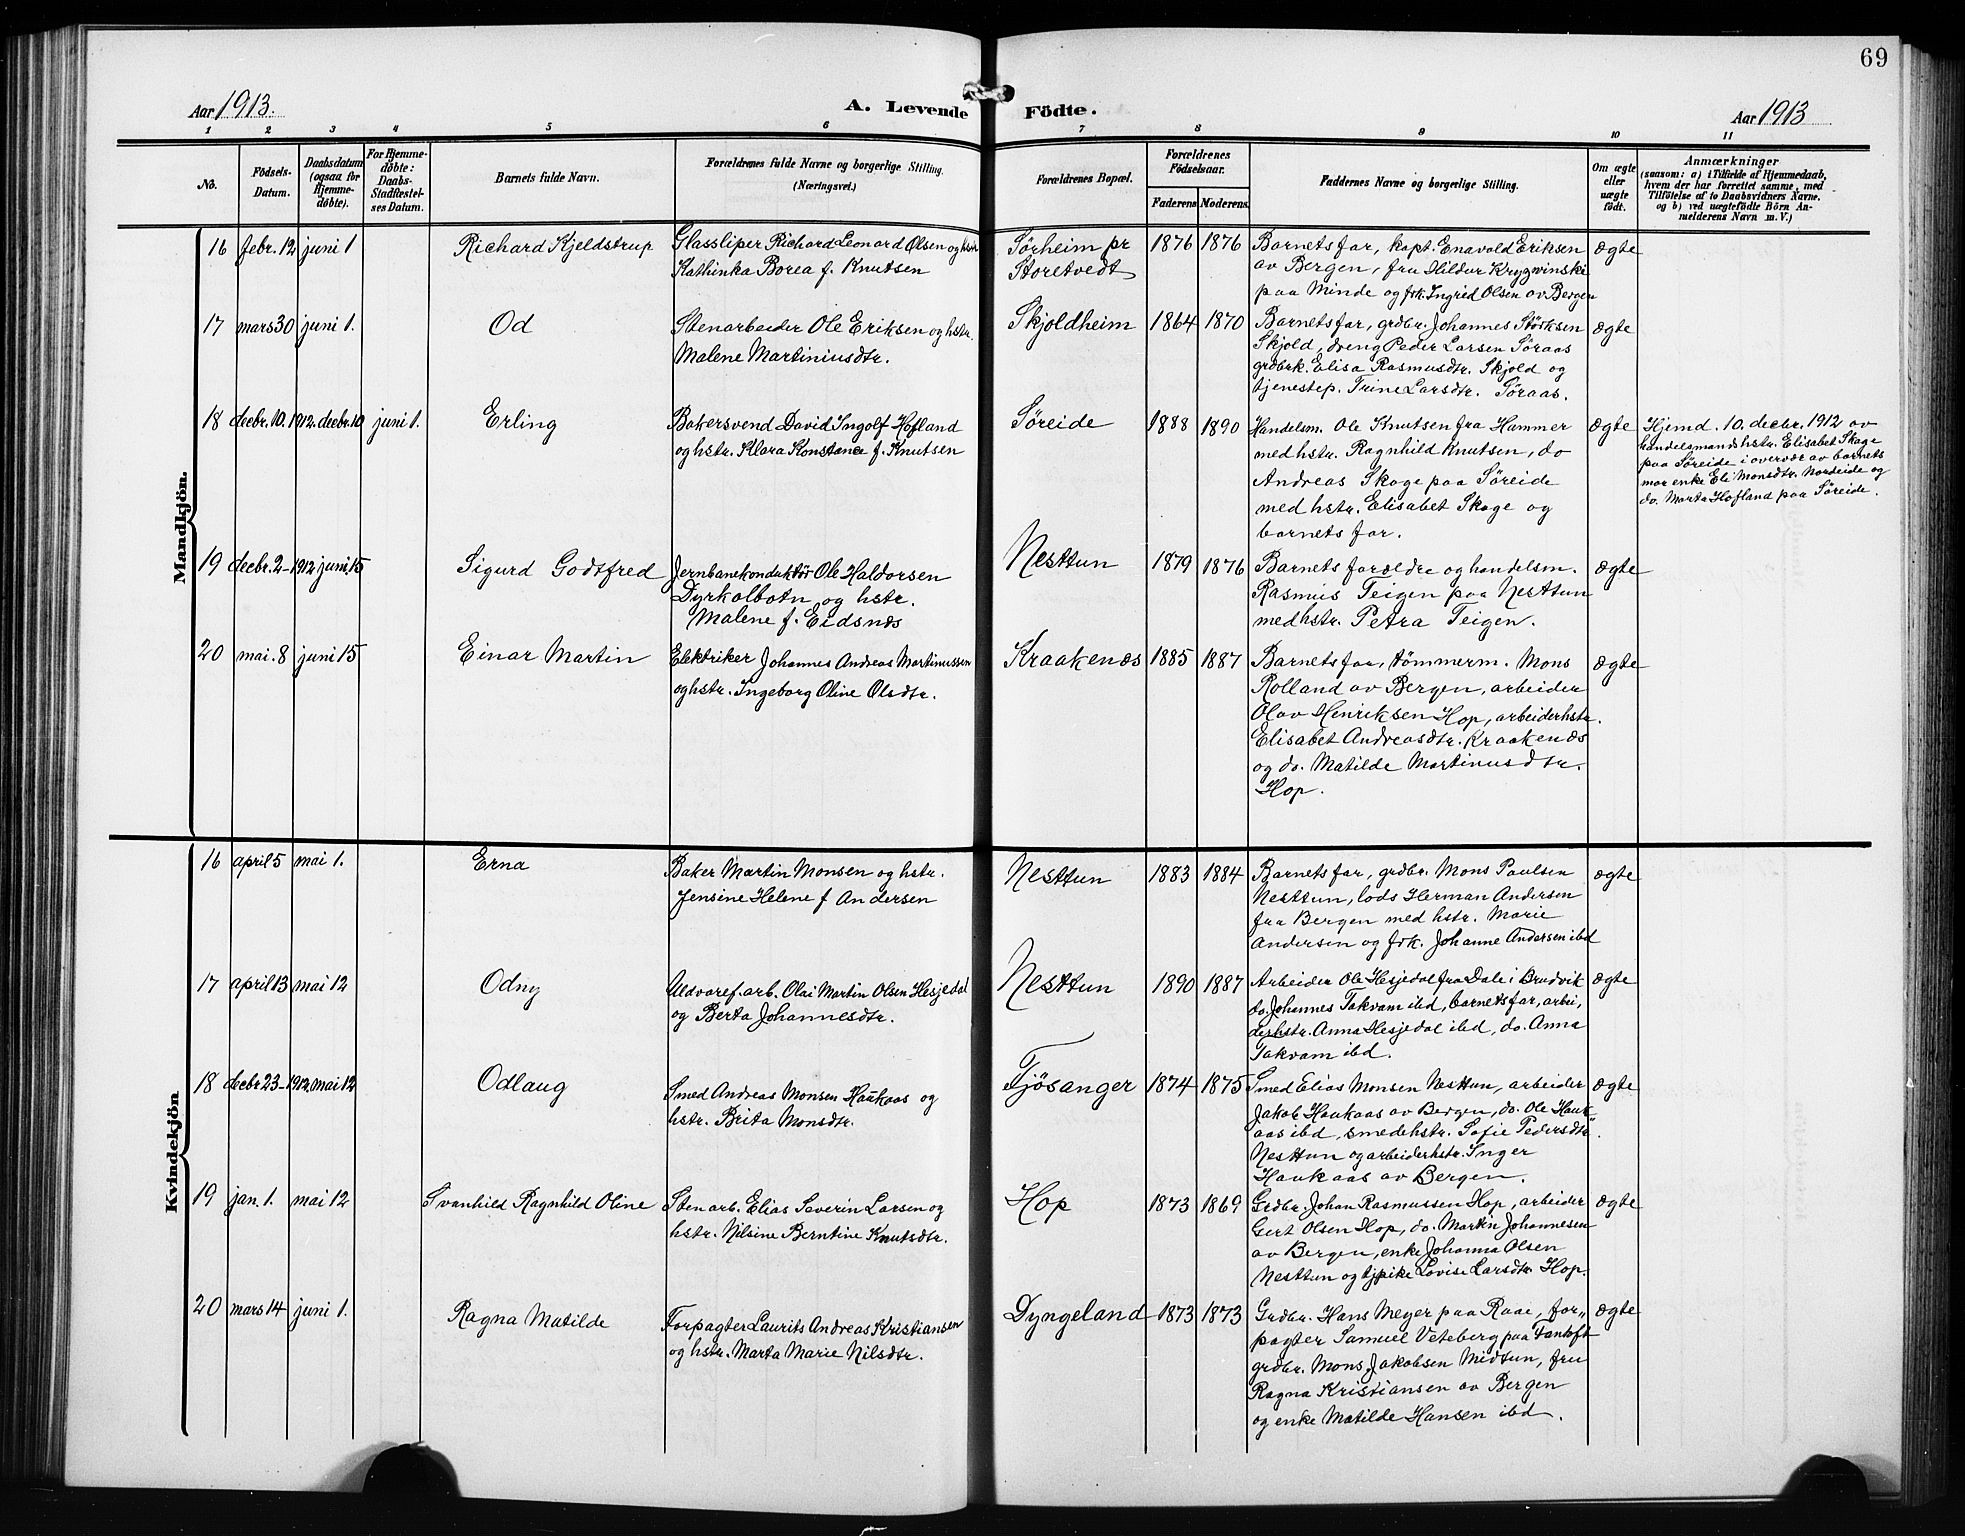 69
Aar 1913.
A. Levende Födte.
Aar 1913
1 2 3 4 5 6 7 8 9 10 11
No.
Födsels-
Datum.
Daabsdatum
(ogsaa for
Hjemme-
døbte).
For Hjemme-
døbte:
Daabs-
Stadfæstel-
ses Datum.
Barnets fulde Navn.
Forældrenes fulde Navne og borgerlige Stilling.
(Næringsvei.)
Forældrenes Bopæl.
Forældrenes
Födselsaar.
Faderens Moderens
Faddernes Navne og borgerlige Stilling.
Om ægte
eller
uægte
født.
Anmærkninger
(saasom: a) i Tilfælde af Hjemmedaab,
hvem der har forrettet samme, med
Tilføielse af to Daabsvidners Navne.
og b) ved uægtefødte Börn An-
melderens Navn m. V.)
Mandkjön.
16 febr. 12 juni 1
Richard Kjeldstrup
Glassliper Richard Leonard Olsen og hstr
Kathinka Borea f. Knutsen
Sørheim pr
Storetvedt
1876 1876
Barnets far, kapt. Enavold Eriksen
av Bergen, fru Hildur Krygwinski
paa Minde og frk. Ingrid Olsen av Bergen
ægte
17 mars 30 juni 1.
Od
Stenarbeider Ole Eriksen og hstr.
Malene Martiniusdtr.
Skjoldheim
1864 1870
Barnets far, grdbr. Johannes Størksen
Skjold, dreng Peder Larsen Søraas
grdbrk. Elisa Rasmusdtr. Skjold og
tjenestep. Trine Larsdtr. Søraas.
ægte
18 decbr. 10. 1912. decbr. 10 juni 1.
Erling
Bakersvend David Ingolf Hofland
og hstr. Klara Konstance f. Knutsen
Søreide
1888 1890
Handelsm. Ole Knutsen fra Hammer
med hstr. Ragnhild Knutsen, do
Andreas Skage paa Søreide
med hstr. Elisabet Skage og
barnets far.
ægte
Hjemd. 10. decbr. 1912 av
handelsmandshstr. Elisabet Skage
paa Søreide i overvær av barnets
mor enke Eli Monsdtr. Nordeide og
do. Marta Hofland paa Søreide.
19 decbr. 2-1912 juni 15
Sigurd Godtfred
Jernbanekonduktør Ole Haldorsen
Dyrkolbotn og hstr.
Malene f. Eidsnæs
Nesttun
1879 1876
Barnets forældre og handelsm.
Rasmus Teigen paa Nesttun
med hstr. Petra Teigen.
ægte
20 mai. 8 juni 15
Einar Martin
Elektriker Johannes Andreas Martinussen
og hstr. Ingeborg Oline Olsdtr.
Kraakenæs
1885 1887
Barnets far, tømmerm. Mons
Rolland av Bergen, arbeider
Olav Henriksen Hop, arbeiderhstr.
Elisabet Andreasdtr. Kraakenæs
og do. Matilde Martinusdtr.
Hop.
ægte
Kvindekjön
16 april 5 mai 1.
Erna
Baker Martin Monsen og hstr.
Jensine Helene f Andersen
Nesttun
1883 1884
Barnets far, grdbr. Mons Paulsen
Nesttun, lods Herman Andersen
fra Bergen med hstr. Marie
Andersen og frk. Johanne Andersen ibd
ægte
17 april 13 mai 12
Odny
Uldvaref. arb. Olai Martin Olsen Hesjedal
og Berta Johannesdtr.
Nesttun
1890 1887
Arbeider Ole Hesjedal fra Dale i Brudvik
do. Johannes Takvam ibd, barnets far, arbei,
derhstr. Anna Hesjedal ibd, do. Anna
Takvam ibd.
ægte
18 decbr 23-1912. mai 12
Odlaug
Smed Andreas Monsen Haukaas og
hstr. Brita Monsdtr.
Fjösanger
1874 1875
Smed Elias Monsen Nesttun, arbeider
Jakob Haukaas av Bergen, do. Ole Hauk-
aas ibd, smedehstr. Sofie Pedersdtr.
Nesttun og arbeiderhstr. Inger
Haukaas av Bergen.
ægte
19 jan. 1. mai 12
Svanhild Ragnhild Oline
Stenarb. Elias Severin Larsen og
hstr. Nilsine Berntine Knutsdtr.
Hop
1873 1869
Grdbr. Johan Rasmussen Hop, arbeider
Gert Olsen Hop, do. Martin Johannesen
av Bergen, enke Johanna Olsen
Nesttun og tjpike Lovise Larsdtr Hop.
ægte
20 mars 14 juni 1.
Ragna Matilde
Forpagter Laurits Andreas Kristiansen
og hstr. Marta Marie Nilsdtr.
Dyngeland
1873 1873
Grdbr. Hans Meyer paa Raae, for„
pagter Samuel Veteberg paa Fantoft
grdbr. Mons Jakobsen Midtun, fru
Ragna Kristiansen av Bergen
og enke Matilde Hansen ibd.
ægte